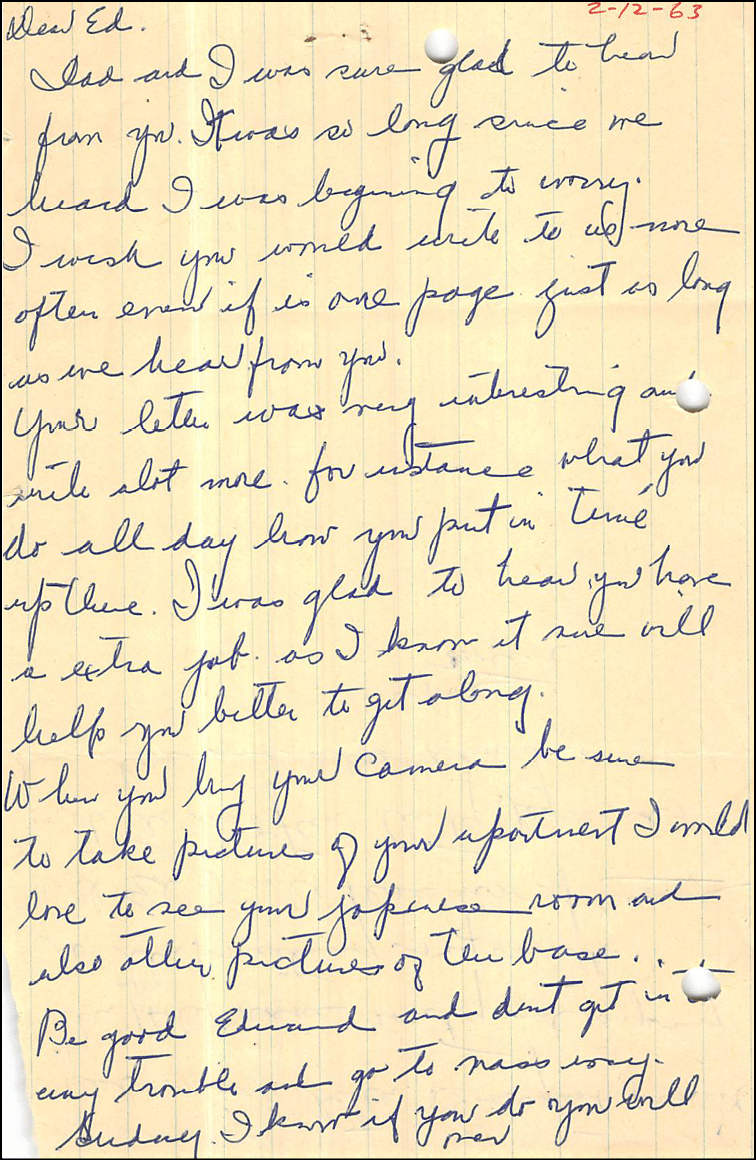 2-12-63
Dear Ed.
Dad and I was sure glad to hear
from you. It was so long since we
heard I was begining to worry.
I wish you would write to us more
often even if is one page just as long
as we hear from you.
Your letter was very interesting and
write alot more. for instance what you
do all day how you put in time
up there. I was glad to hear you have
a extra job. as I know it sure will
help you better to get along.
When you buy your Camera be sure
to take pictures of your apartment I would
love to see your japenese room and
also other pictures of the base.
Be good Edward and dont get in to
any trouble and go to mass every
Sunday. I know if you do you will
over